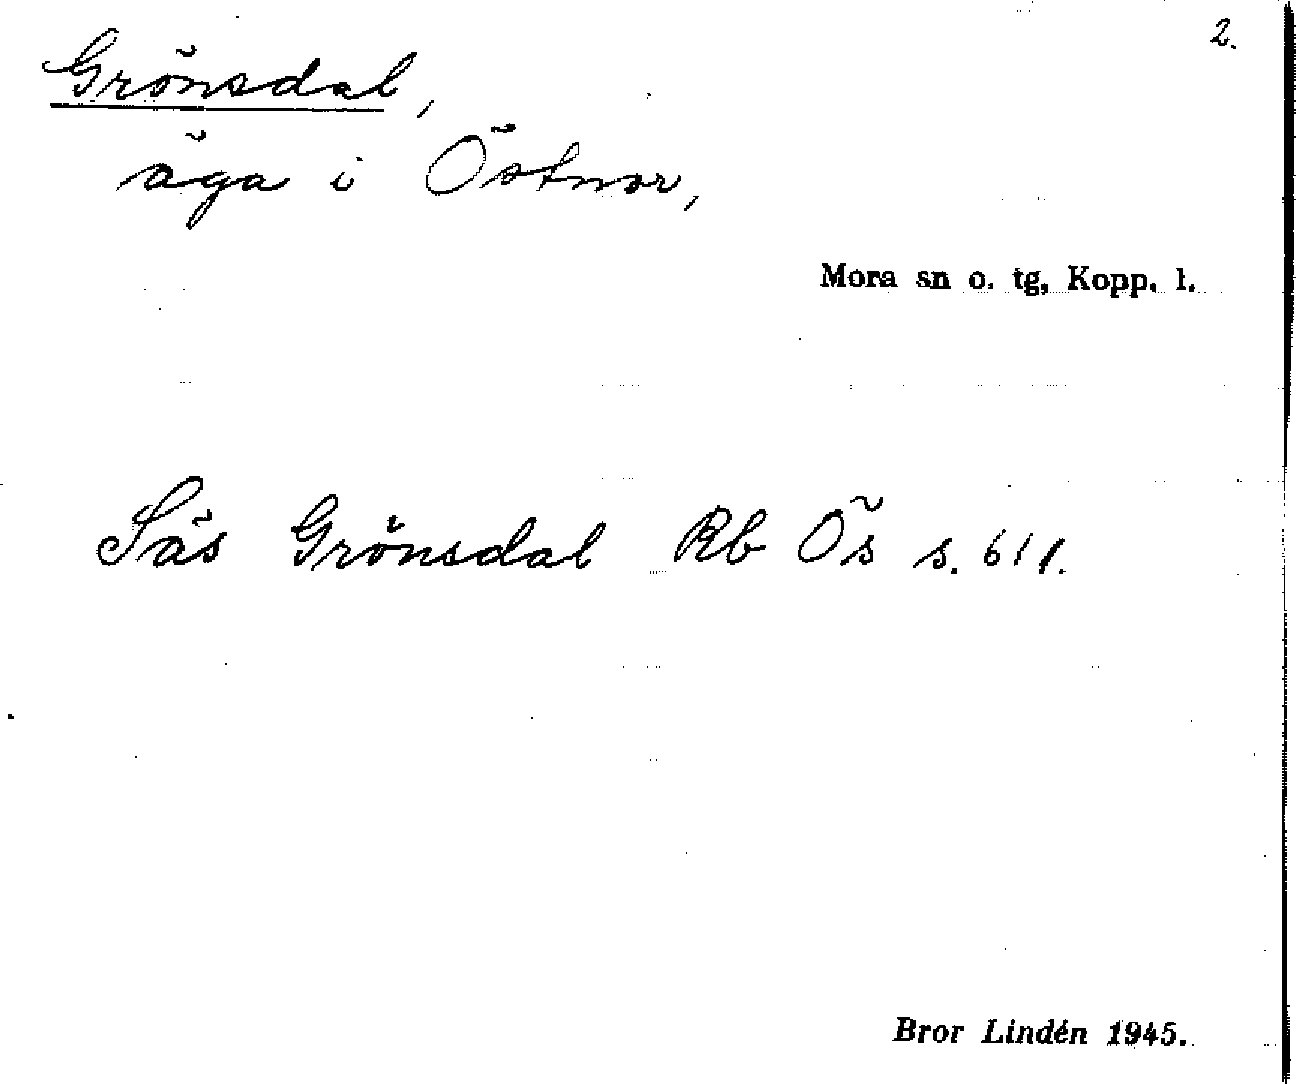 2.
Grönsdal,
äga i Östnor,
Mora sn o. tg, Kopp. l.
Säs Grönsdal Rb Ös s. 611.
Bror Lindén 1945.